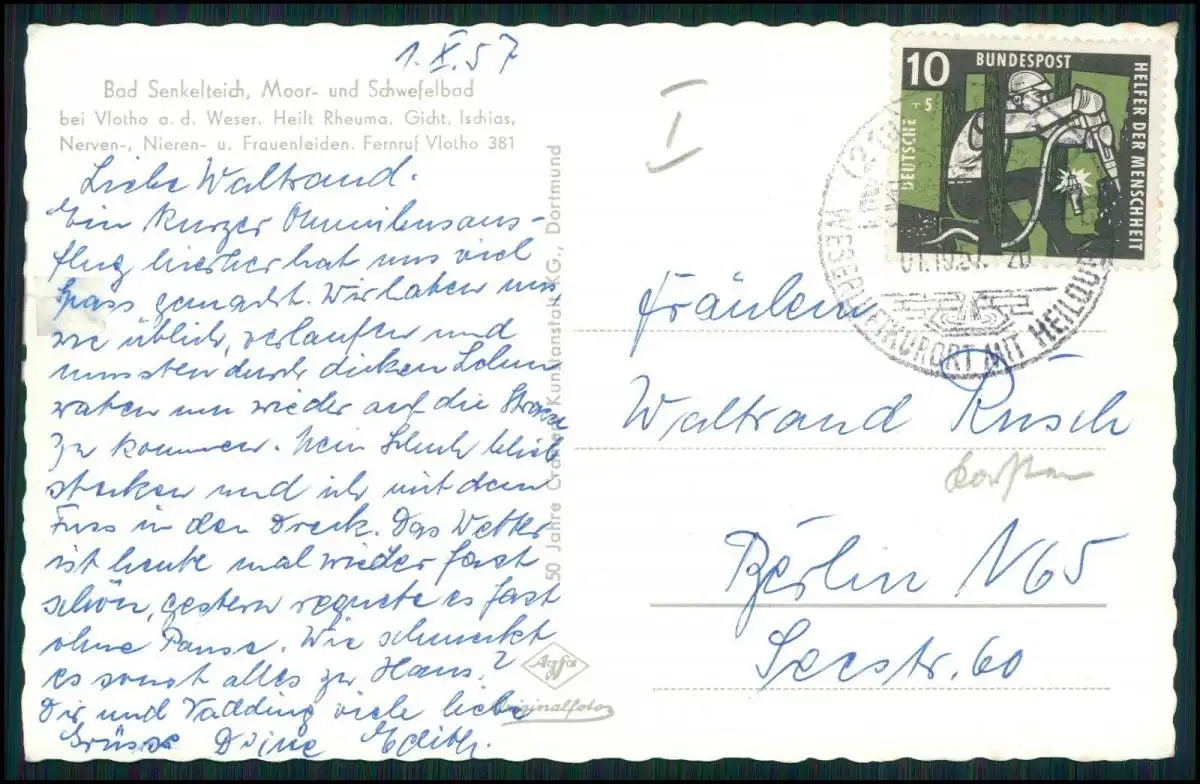 1.X.57
Bad Senkelteich, Moor- und Schwefelbad
bei Vlotho a. d. Weser. Heilt Rheuma, Gicht, Ischias,
Nerven-, Nieren- u. Frauenleiden. Fernruf Vlotho 381
Liebe Waltraud.
Ein kurzer Omnibusaus-
flug hierher hat uns viel
Spass gemacht. Wir haben uns
wie üblich, verlaufen und
mussten durch dicken Lehm
waten um wieder auf die Strasse
zu kommen. Mein Schuh blieb
stecken und ich mit dem
Fuss in den Dreck. Das Wetter
ist heute mal wieder fast
schön, gestern regnete es fast
ohne Pause. Wie schmeckt
es sonst alles zu Haus?
Dir und Vadding viele liebe
Grüsse Deine Edith.
50 Jahre Kunstanstalt KG., Dortmund
Agfa
Originalfoto
I
10
+5
DEUTSCHE BUNDESPOST
HELFER DER MENSCHHEIT
01.10.57. 20
WESERLUFTKURORT MIT
Fräulein
Waltraud Rusch
Berlin N65
Seestr. 60